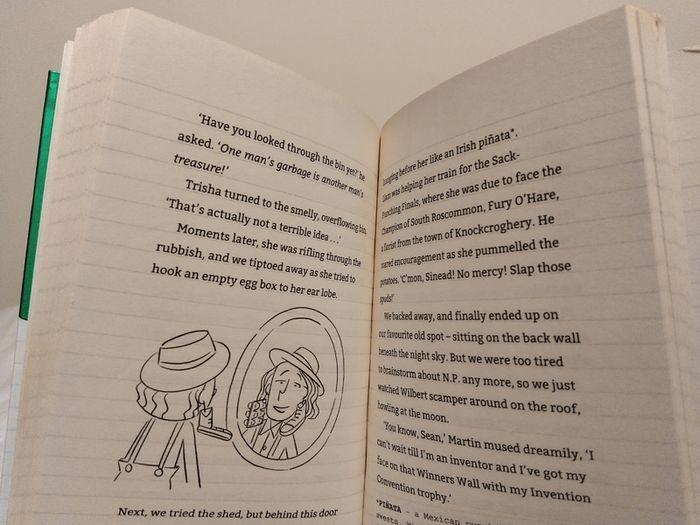 'Have you looked through the bin yet?' he
asked. 'One man's garbage is another man's
treasure!'
Trisha turned to the smelly, overflowing bin.
'That's actually not a terrible idea . . .'
Moments later, she was rifling through the
rubbish, and we tiptoed away as she tried to
hook an empty egg box to her ear lobe.
Next, we tried the shed, but behind this door
hanging before her like an Irish piñata*.
Liam was helping her train for the Sack-
Punching Finals, where she was due to face the
Champion of South Roscommon, Fury O'Hare,
a florist from the town of Knockcroghery. He
roared encouragement as she pummelled the
potatoes. 'C'mon, Sinead! No mercy! Slap those
spuds!'
We backed away, and finally ended up on
our favourite old spot – sitting on the back wall
beneath the night sky. But we were too tired
to brainstorm about N.P. any more, so we just
watched Wilbert scamper around on the roof,
howling at the moon.
'You know, Sean,' Martin mused dreamily, 'I
can't wait till I'm an inventor and I've got my
face on that Winners Wall with my Invention
Convention trophy.'
*PIÑATA – a Mexican
sweets.